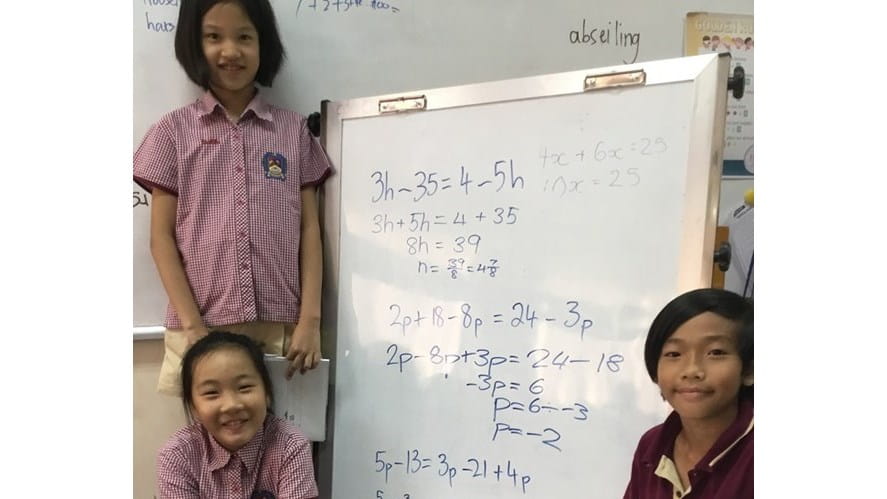 hats
7+2+5
abseiling
GOLDEN
4x + 6x = 25
10x = 25
3h - 35 = 4 - 5h
3h + 5h = 4 + 35
8h = 39
n = 39/8 = 4 7/8
2p + 18 - 8p = 24 - 3p
2p - 8p + 3p = 24 - 18
-3p = 6
p = 6 ÷ -3
p = -2
5p - 13 = 3p - 21 + 4p